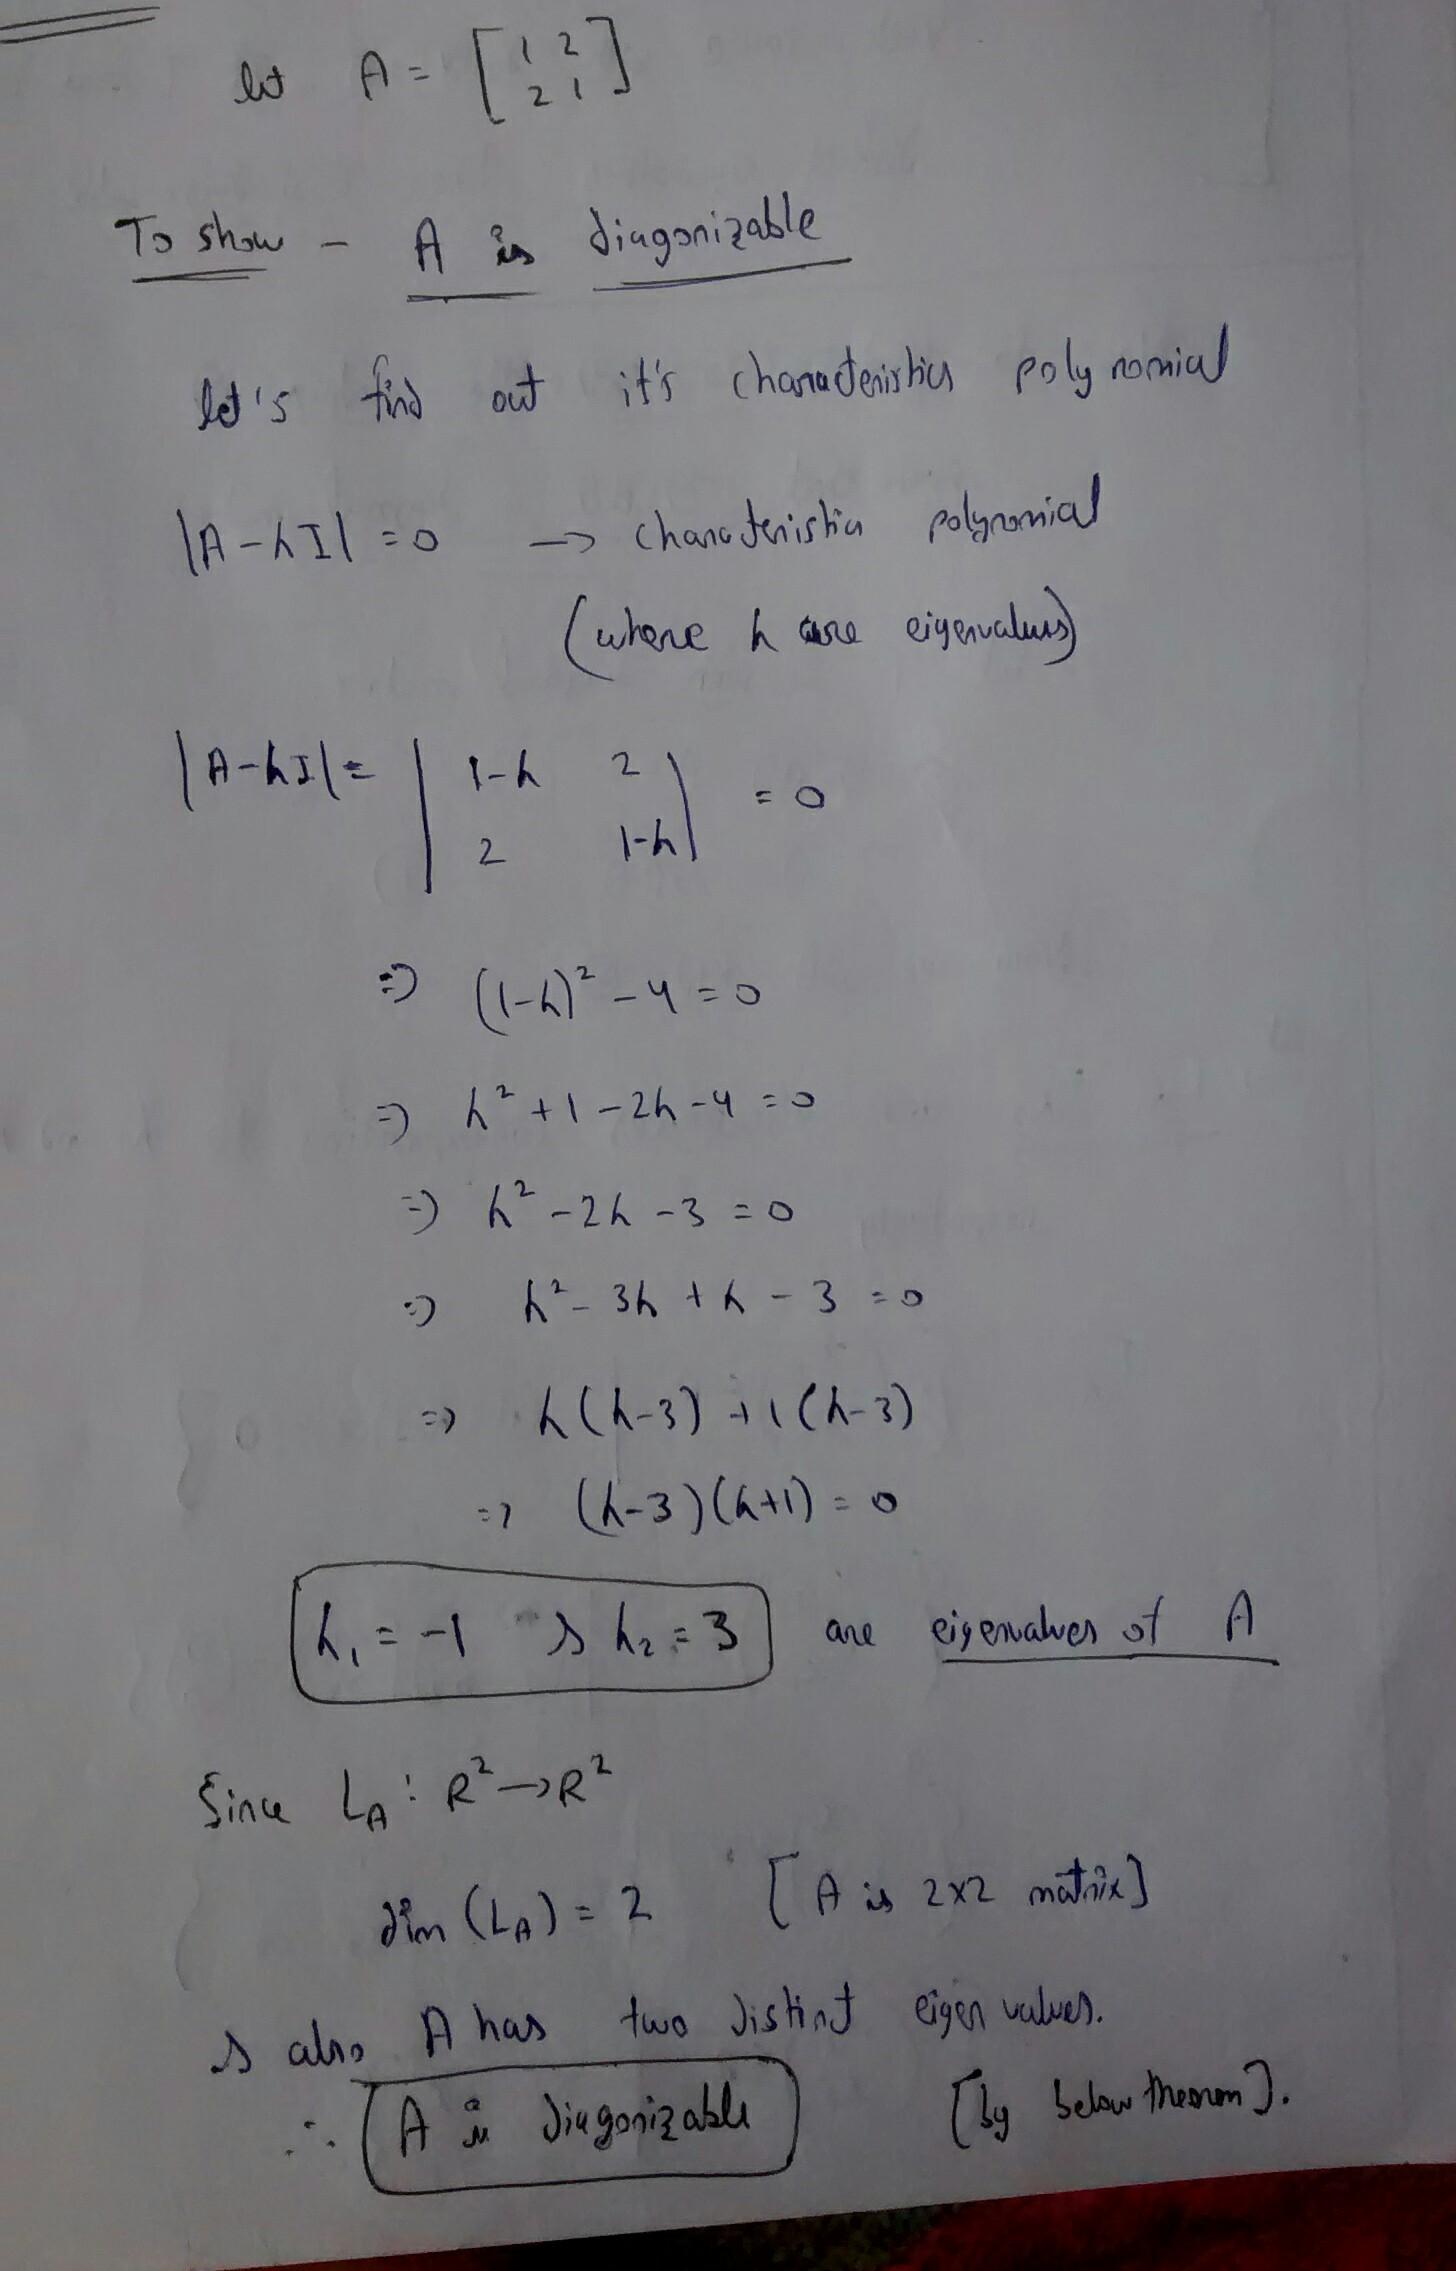 let A = [1 2
2 1]
To show - A is diagonizable
let's find out it's characteristics polynomial
|A-λI| = 0 → characteristics polynomial
(where λ are eigenvalues)
|A-λI| = |1-λ 2
2 1-λ| = 0
⇒ (1-λ)² - 4 = 0
⇒ λ² + 1 - 2λ - 4 = 0
⇒ λ² - 2λ - 3 = 0
⇒ λ² - 3λ + λ - 3 = 0
⇒ λ(λ-3) + 1(λ-3)
⇒ (λ-3)(λ+1) = 0
λ₁ = -1 & λ₂ = 3 are eigenvalues of A
Since L_A : R² → R²
dim (L_A) = 2 [A is 2×2 matrix]
& also A has two distinct eigen values.
∴ A is diagonizable [by below theorem].